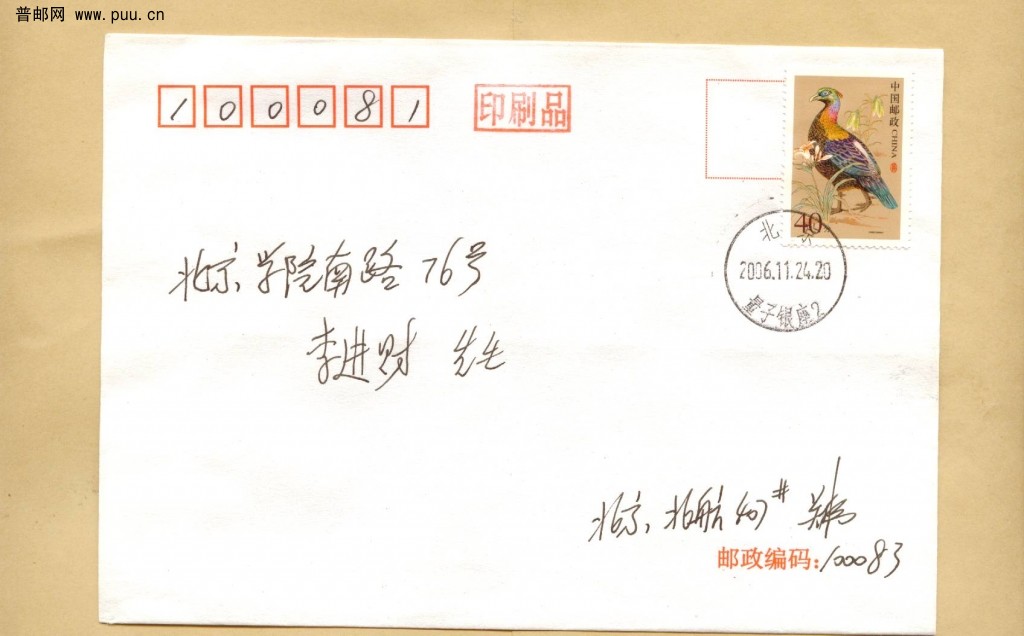 普邮网 www.puu.cn
100081
印刷品
中国邮政 CHINA
40
北京
2006.11.24.20
量子银座2
北京学院南路76号
李进财 先生
北京,北航407#
邮政编码:100083